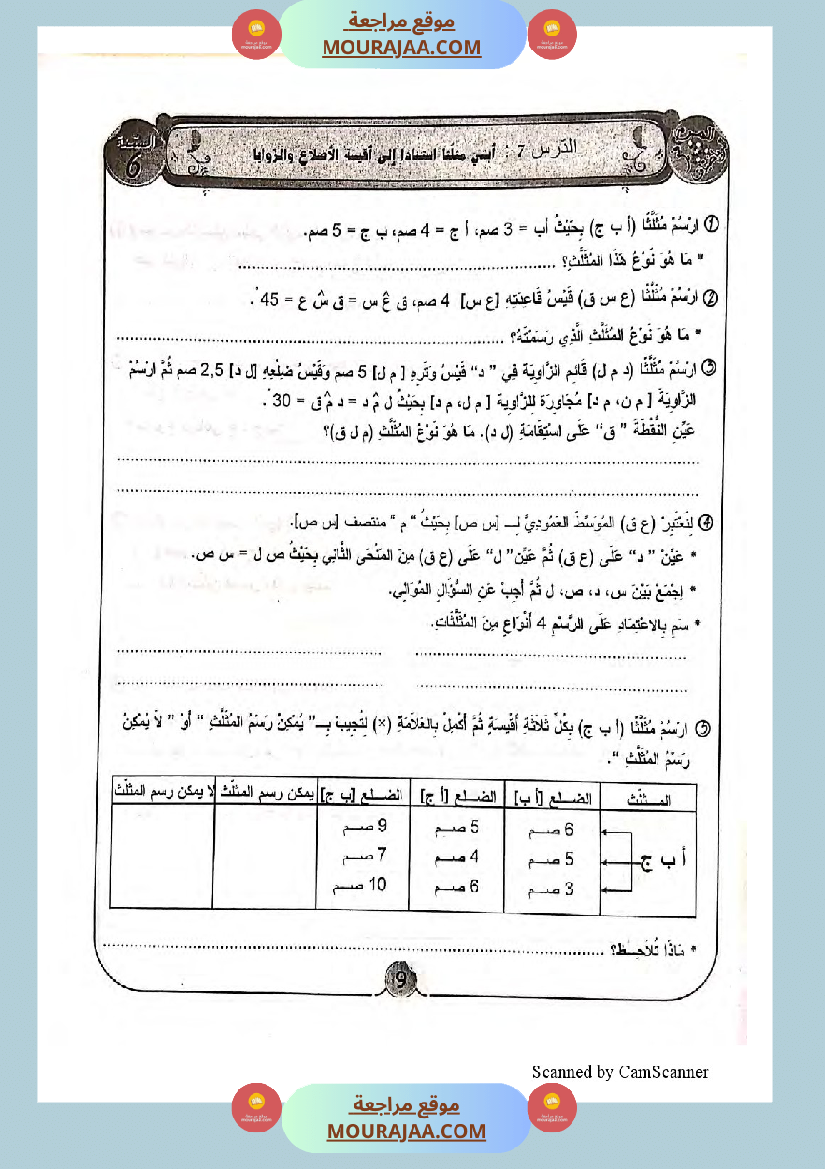 موقع مراجعة
MOURAJAA.COM
السنة 6
الدرس 7 : أبني مثلثا استنادا إلى أقيسة الأضلاع والزوايا
① ارْسُمْ مُثَلَّثًا (أ ب ج) بِحَيْثُ أب = 3 صم، أ ج = 4 صم، ب ج = 5 صم.
* مَا هُوَ نَوْعُ هَذَا المُثَلَّثِ؟
② ارْسُمْ مُثَلَّثًا (ع س ق) قَيْسُ قَاعِدَتِهِ [ع س] 4 صم، ق عٌ س = ق سٌ ع = 45°.
* مَا هُوَ نَوْعُ المُثَلَّثِ الَّذِي رَسَمْتَهُ؟
③ ارْسُمْ مُثَلَّثًا (د م ل) قَائِم الزَّاوِيَة فِي " د" قَيْسُ وَتَرِهِ [ م ل] 5 صم وَقَيْسُ ضِلْعِهِ [ل د] 2,5 صم ثُمَّ ارْسُمْ
الزَّاوِيَةَ [ م ن، م د] مُجَاوِرَة لِلزَّاوِيَةِ [ م ل، م د] بِحَيْثُ ل مٌ د = د مٌ ق = 30°.
عَيِّنِ النُّقْطَةَ " ق" عَلَى اسْتِقَامَةِ (ل د). مَا هُوَ نَوْعُ المُثَلَّثِ (م ل ق)؟
④ لِنَعْتَبِرْ (ع ق) المُوَسِّطَ العَمُودِيَّ لِـ [س ص] بِحَيْثُ " م " منتصف [س ص].
* عَيِّنْ " د" عَلَى (ع ق) ثُمَّ عَيِّن" ل" عَلَى (ع ق) مِنَ المَنْحَى الثَّانِي بِحَيْثُ ص ل = س ص.
* اِجْمَعْ بَيْنَ س، د، ص، ل ثُمَّ أَجِبْ عَنِ السُّؤَالِ المُوَالِي.
* سَمِّ بِالاعْتِمَادِ عَلَى الرَّسْمِ 4 أَنْوَاعٍ مِنَ المُثَلَّثَاتِ.
⑤ ارْسُمْ مُثَلَّثًا (أ ب ج) بِكُلِّ ثَلَاثَةِ أَقْيِسَةٍ ثُمَّ أَكْمِلْ بِالعَلَامَةِ (×) لِتُجِيبَ بِـ" يُمْكِنُ رَسْمُ المُثَلَّثِ " أَوْ " لاَ يُمْكِنُ
رَسْمُ المُثَلَّثِ ".
المـثلّث الضـلـع [أ ب] الضلـع [أ ج] الضلـع [ب ج] يمكن رسم المثلّث لا يمكن رسم المثلّث
6 صـم 5 صـم 9 صـم
أ ب ج 5 صـم 4 صـم 7 صـم
3 صـم 6 صـم 10 صـم
* مَاذَا تُلاَحِـظُ؟
9
Scanned by CamScanner
موقع مراجعة
MOURAJAA.COM